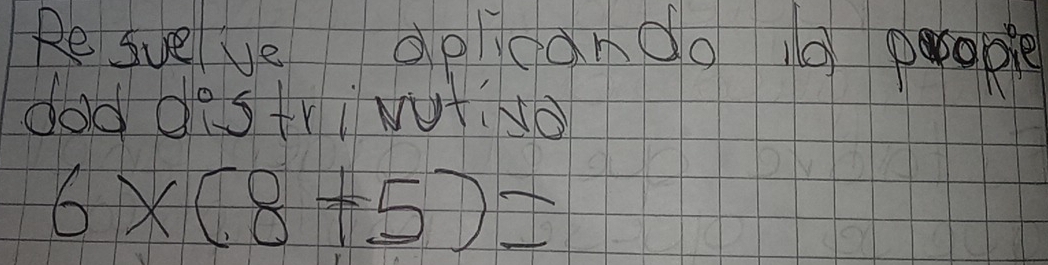 Resuelve aplicando la propie
dad distrivutiva
6 x (8 + 5) =